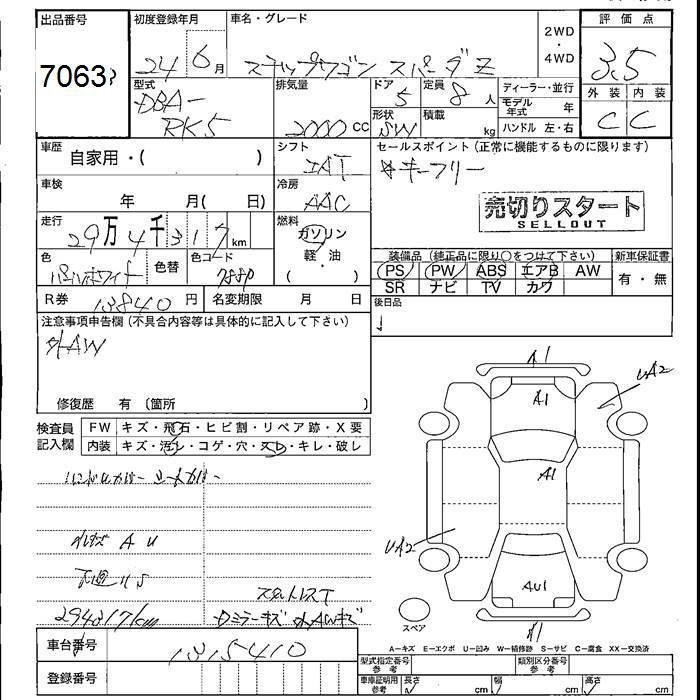 出品番号 初度登録年月 車名・グレード 2WD ・ 4WD 評価点
7063 24 6月 ステップワゴン スパーダZ 3.5
型式 排気量 ドア 定員 ディーラー・並行 外装 内装
DBA- RK5 2000 CC 5 8人 モデル年式 年 C C
形状 積載 ハンドル 左・右
SW kg
車歴 シフト セールスポイント(正常に機能するものに限ります)
自家用・( ) IAT キーフリー
車検 冷房
年 月( 日) AAC 売切りスタート
SELLOUT
走行 燃料
29万4千317km ガソリン
軽・油
( )
装備品(純正品に限り○をつけて下さい) 新車保証書
PS PW ABS エアB AW 有・無
SR ナビ TV カワ
色 色替 色コード
パールホワイト 7880
R券 13840円 名変期限 月 日 後日品
注意事項申告欄(不具合内容等は具体的に記入して下さい)
外AW
修復歴 有(箇所 )
検査員記入欄 FW キズ・飛石・ヒビ割・リペア跡・X要
内装 キズ・汚レ・コゲ・穴・スレ・キレ・破レ
A1
A1 UA2
A1
UA2
AU1
スペア
294317km
A-キズ E-エクボ U-凹み W-補修跡 S-サビ C-腐食 XX-交換済
車台番号 1315410
登録番号
型式指定番号 参考 類別区分番号 参考
車庫証明用 参考 長さ cm 幅 cm 高さ cm